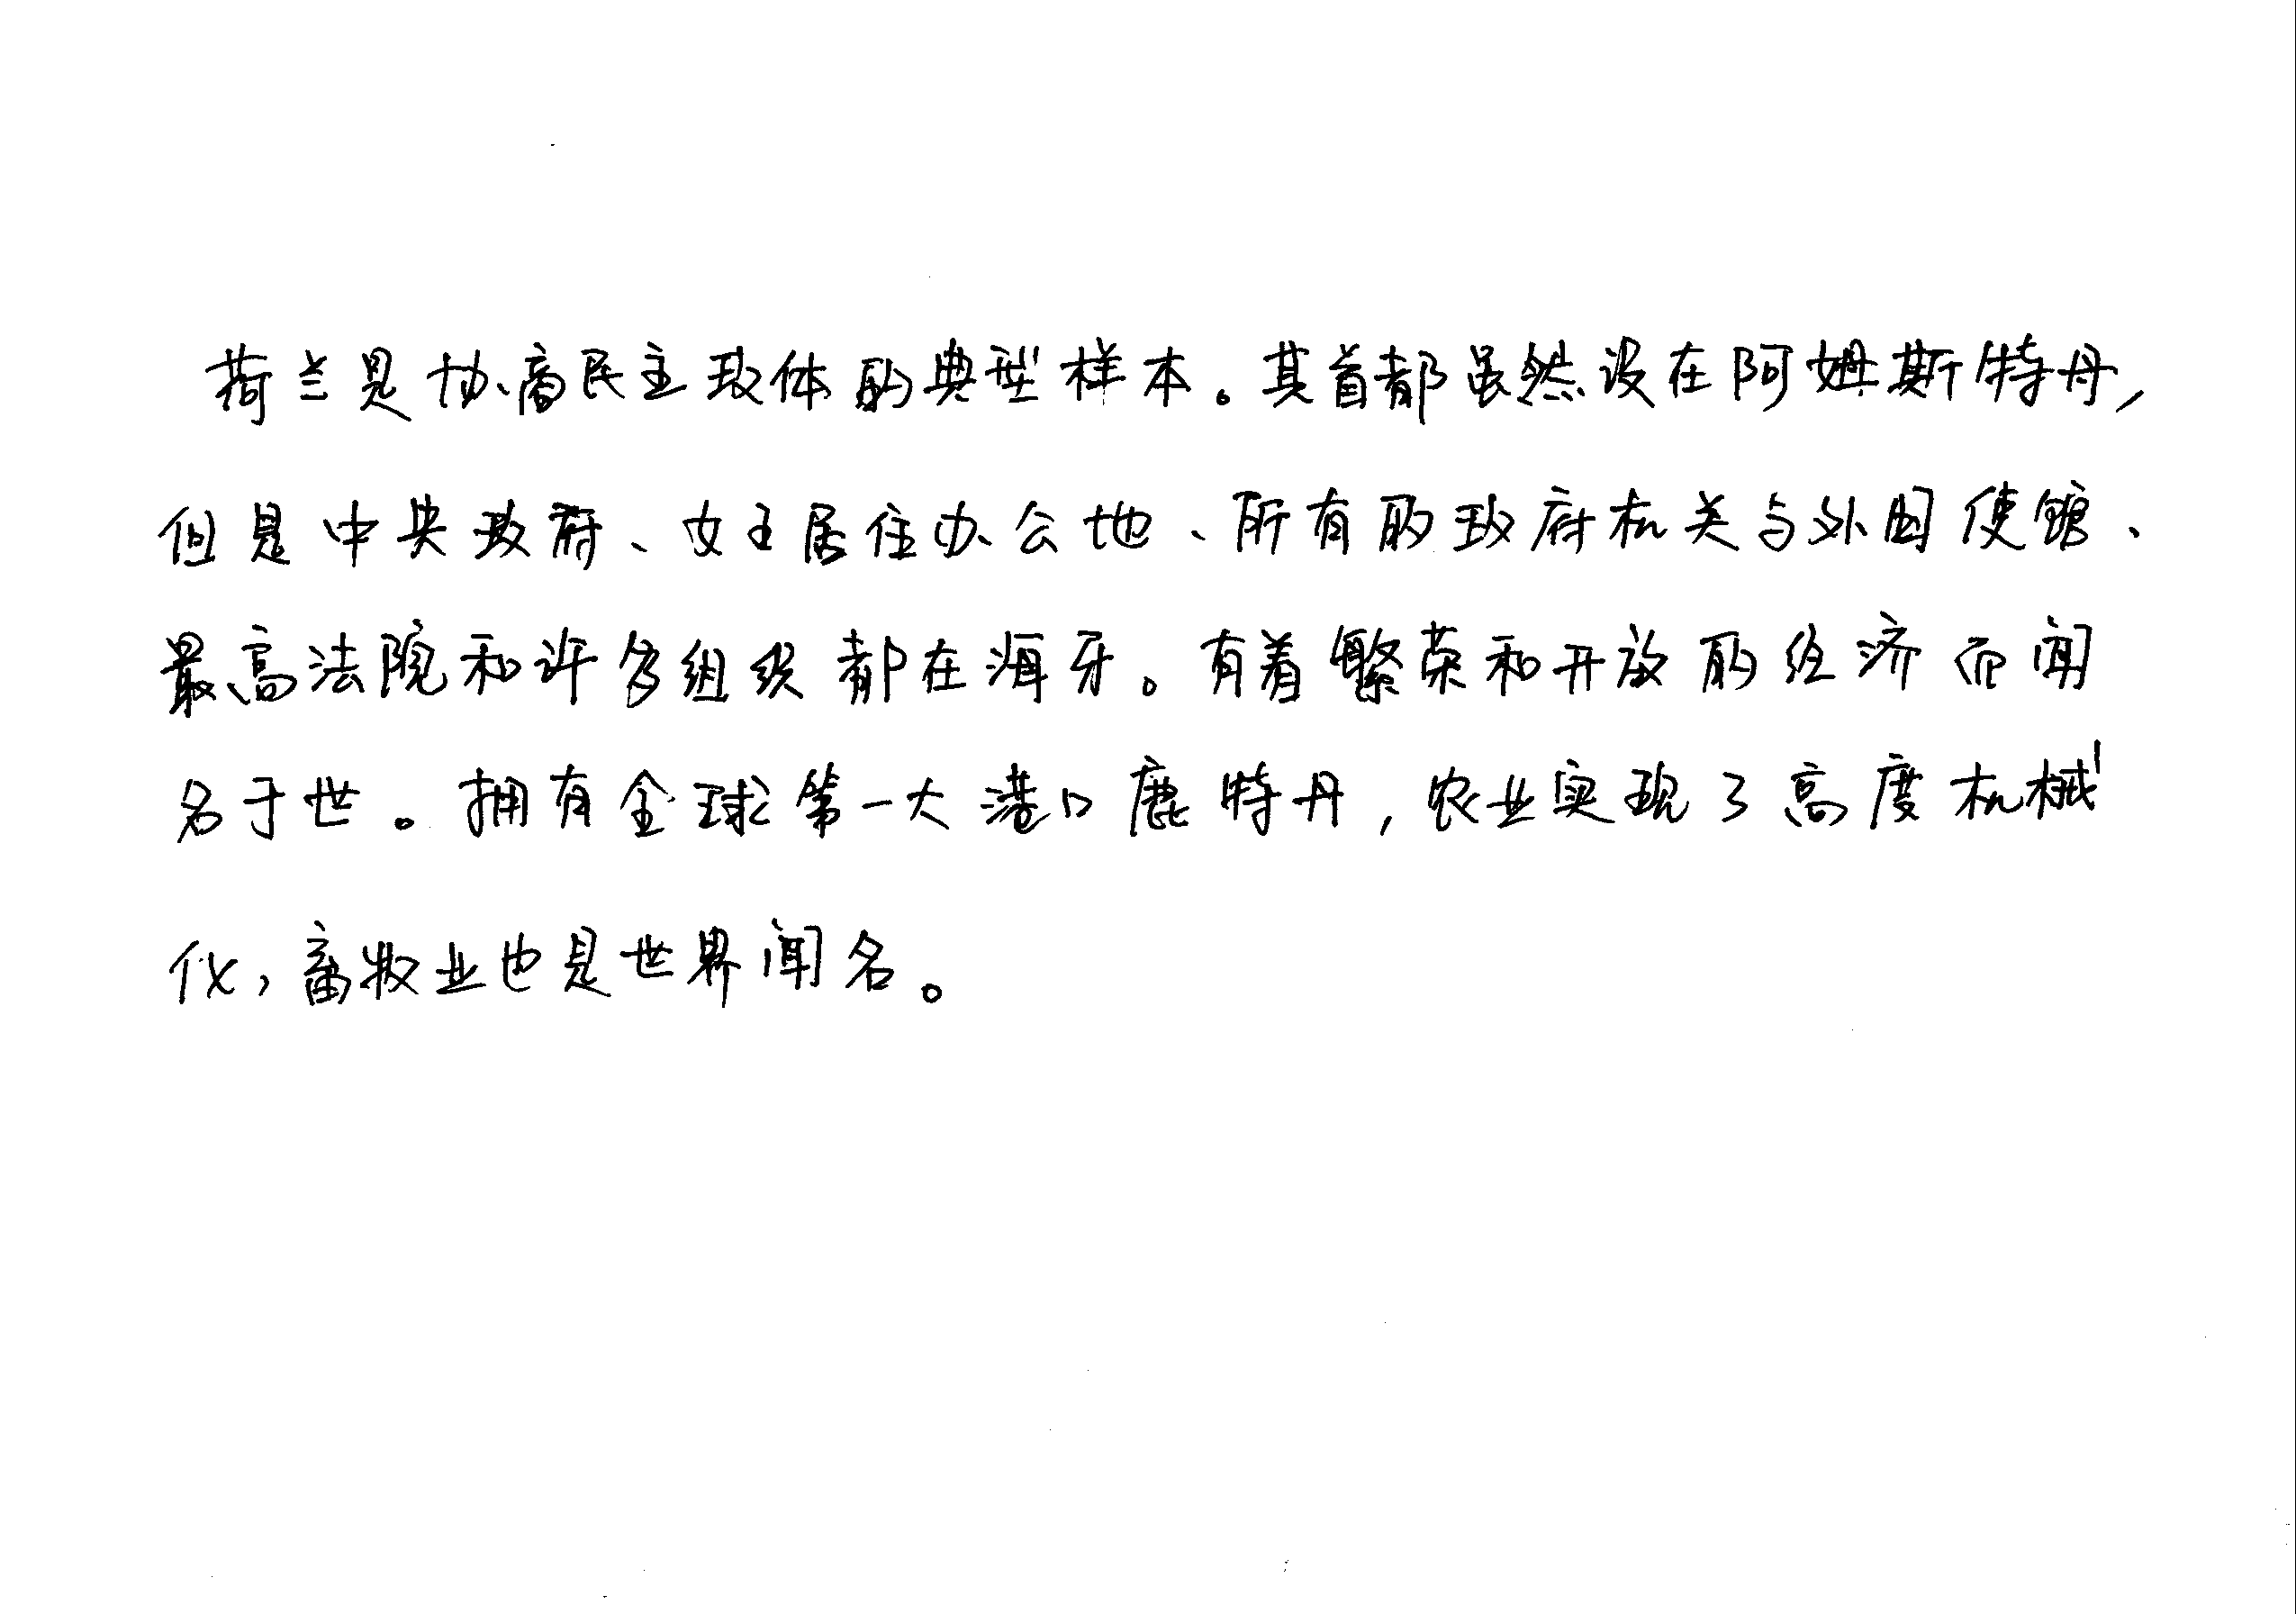 荷兰是协商民主政体的典型样本。其首都虽然设在阿姆斯特丹,
但是中央政府、女王居住办公地、所有的政府机关与外国使馆、
最高法院和许多组织都在海牙。有着繁荣和开放的经济而闻
名于世。拥有全球第一大港口鹿特丹,农业实现了高度机械
化,畜牧业也是世界闻名。